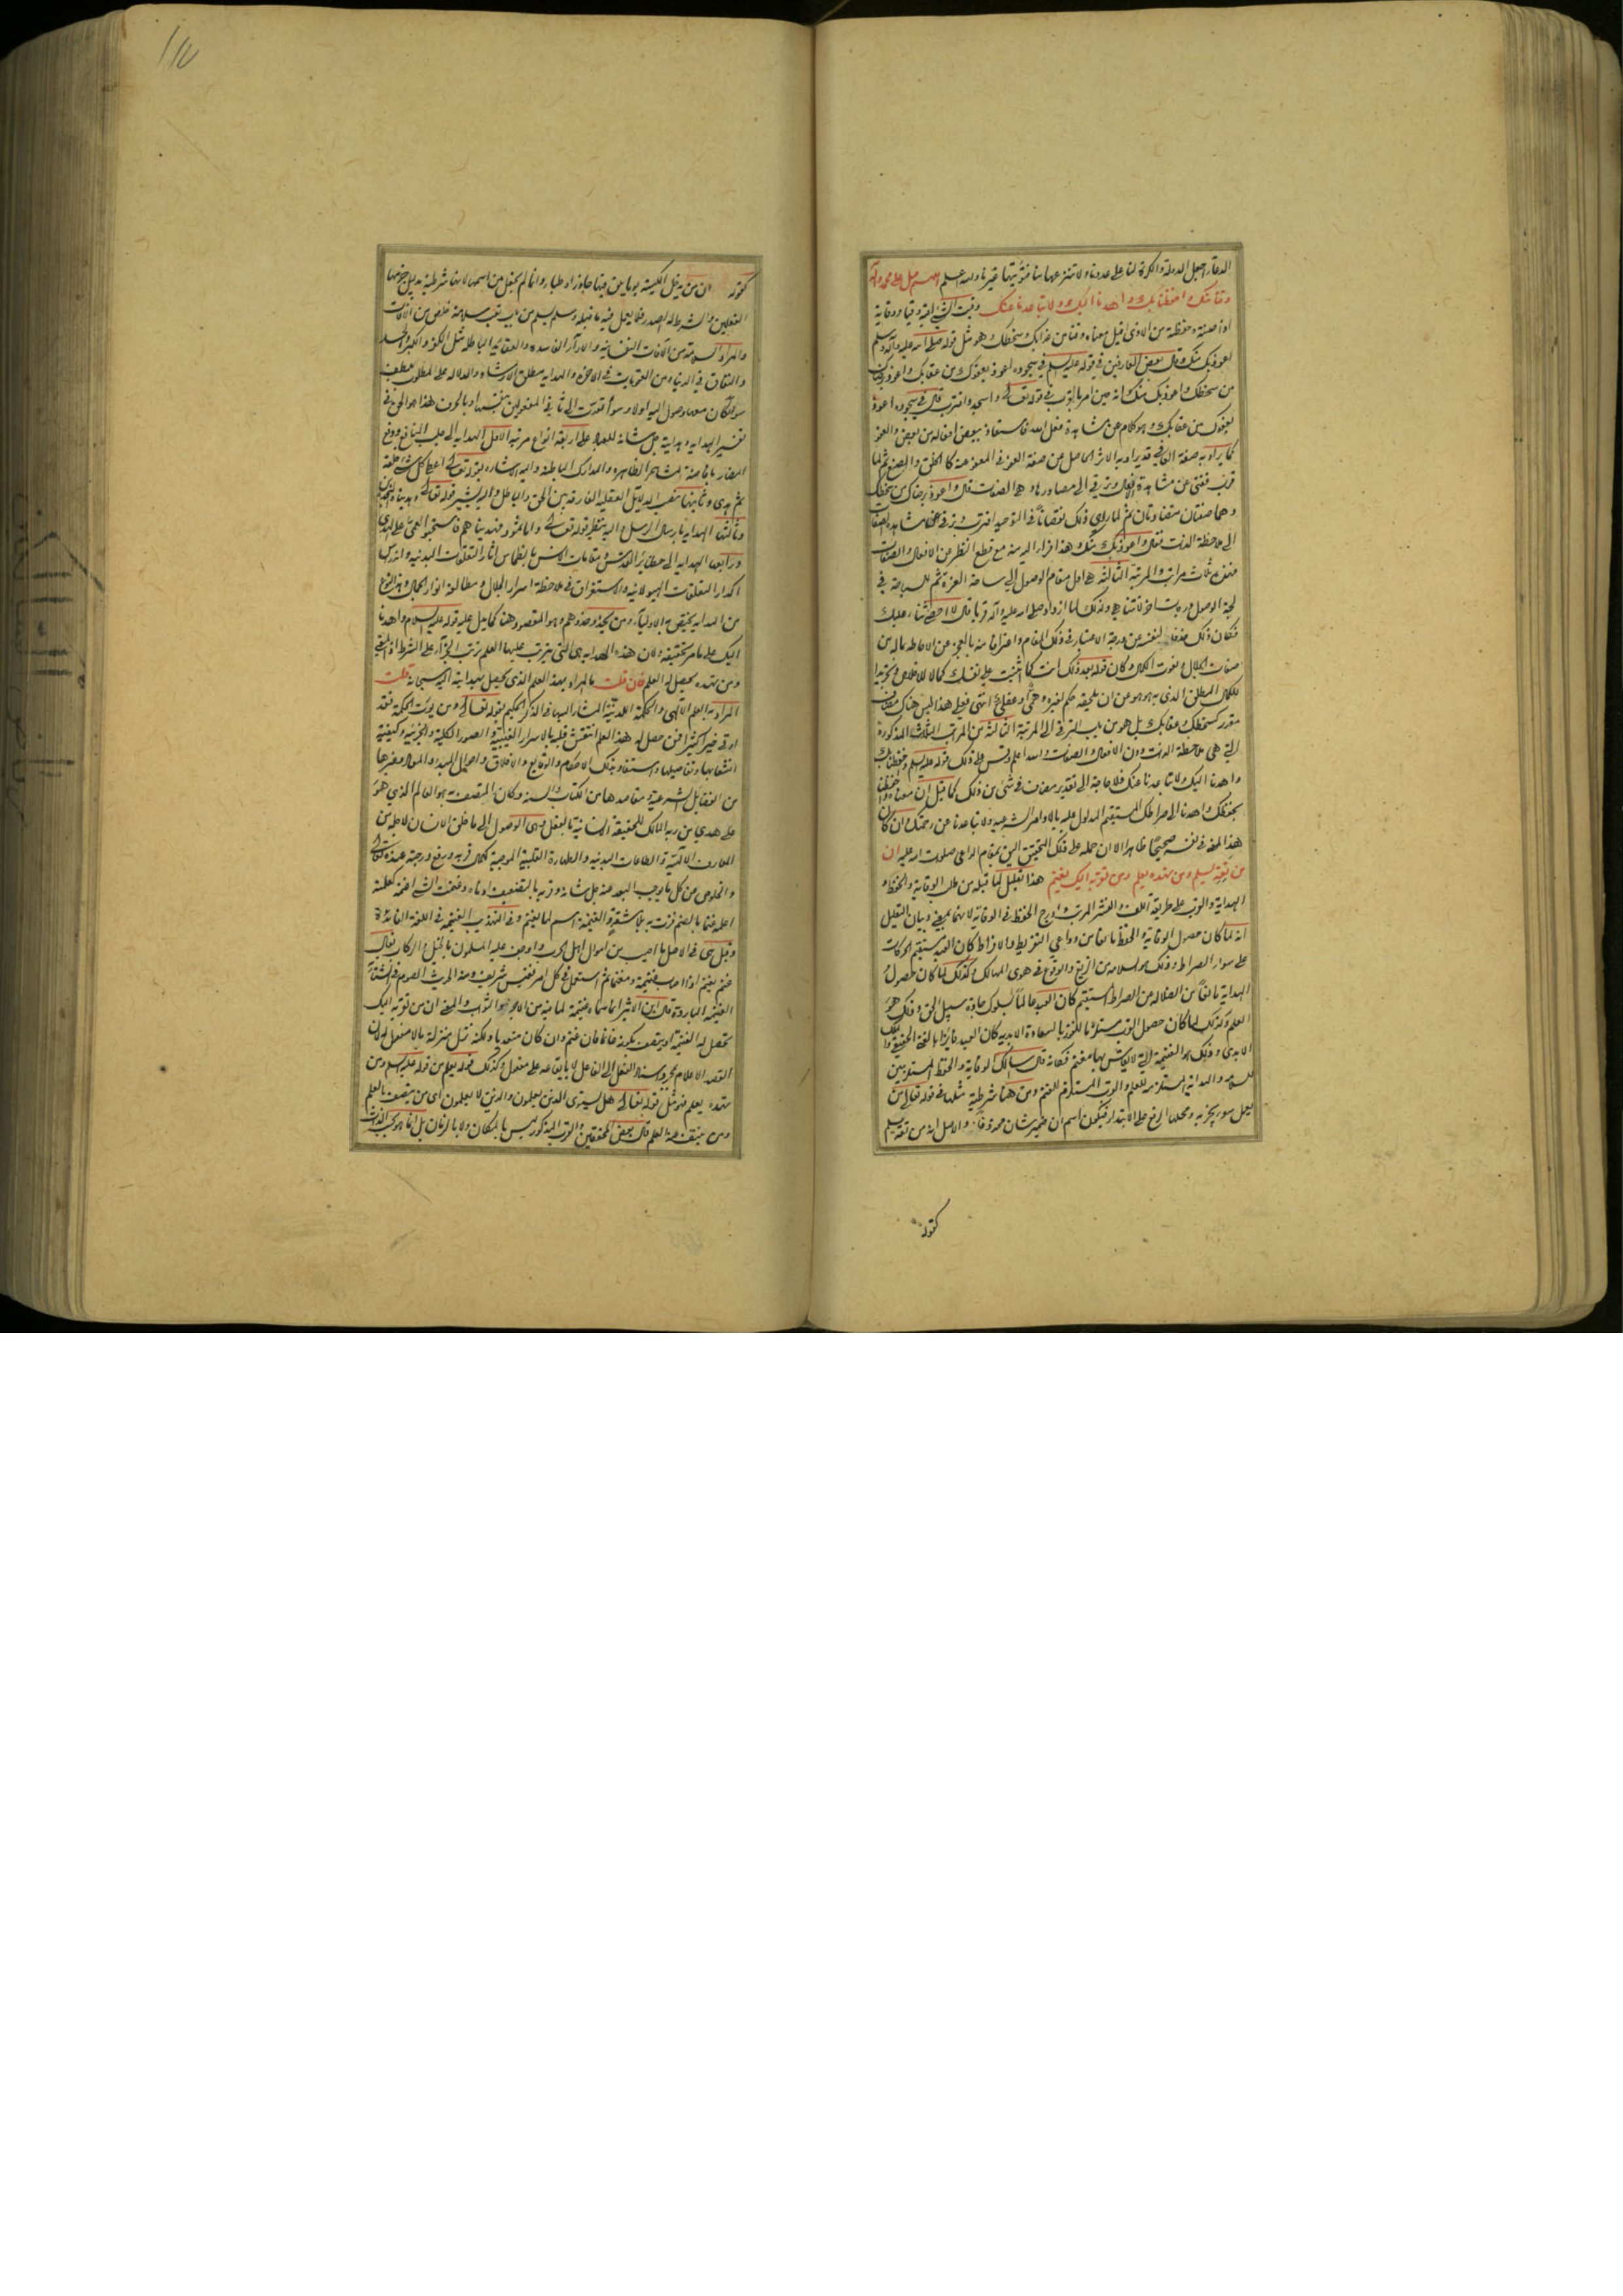 الدعاء اجعل الدولة والكرة لنا على عدونا ولا تنزعها منا فتؤتيها غيرنا والله اعلم اللهم صل على محمد وآله
وقنا بك واحفظنا بك واهدنا اليك ولا تباعدنا عنك وقيت الشئ اقيه وقيا ووقاية
اذا صنته وحفظته من الاذى قيل معناه وقنا من عذابك وسخطك وهو مثل قوله صلى الله عليه وآله وسلم
اعوذ بك منك وقال بعض العارفين في قوله عليه السلم في سجوده اعوذ بعفوك من عقابك واعوذ برضاك
من سخطك واعوذ بك منك انه حين امر بالقرب في قوله تعالى واسجد واقترب قال في سجوده اعوذ
بعفوك من عقابك وهو كلام عن مشاهدة فعل الله فاستعاذ ببعض افعاله من بعض والعفو
كما يراد به صفة العافي قد يراد به الاثر الحاصل عن صفة العفو في المعفو عنه كالخلق والصنع ثم لما
قرب ففنى عن مشاهدة الافعال وترقى الى مصادرها وهي الصفات قال واعوذ برضاك من سخطك
وهما صفتان متضادتان ثم لما راى ذلك نقصانا في التوحيد اقترب وترقى عن مشاهدة الصفات
الى ملاحظة الذات فقال واعوذ بك منك وهذا فرار اليه منه مع قطع النظر عن الافعال والصفات
فهذه ثلث مراتب والمرتبة الثالثة هي اول مقام الوصول الى ساحة العزة ثم للسباحة في
لجة الوصول درجات اخر لا تتناهى ولذلك لما ازداد صلى الله عليه وآله قربا قال لا احصي ثناء عليك
فكان ذلك حذفا لنفسه عن درجة الاعتبار في ذلك المقام واعترافا منه بالعجز عن الاحاطة بما له من
صفات الجلال ونعوت الكمال وكان قوله بعد ذلك انت كما اثنيت على نفسك كمالا للاخلاص وتجريدا
للكمال المطلق الذي به هو هو عن ان يلحقه حكم لغيره وهمي او عقلي انتهى فعلى هذا ليس هناك مضاف
مقدر كسخطك وعقابك بل هو من باب الترقي الى المرتبة الثالثة من المراتب الثلث المذكورة
التي هي ملاحظة الذات دون الافعال والصفات والله اعلم وقس على ذلك قوله عليه السلم واحفظنا بك
واهدنا اليك ولا تباعدنا عنك فلا حاجة الى تقدير مضاف في شئ من ذلك كما قيل ان معناه واحفظنا
بحفظك واهدنا الى صراطك المستقيم المدلول عليه بالاوامر الشرعيه ولا تباعدنا عن رحمتك وان كان
هذا المعنى في نفسه صحيحا ظاهرا الا ان حمله على ذلك التحقيق اليق بمقام الداعي صلوات الله عليه ان
من تقه يسلم ومن تهده يعلم ومن تقربه اليك يغنم هذا تعليل لما قبله من طلب الوقاية والحفظ و
الهداية والقرب على طريقة اللف والنشر المرتب وادرج الحفظ في الوقاية لانهما بمعنى وبيان التعليل
انه لما كان حصول الوقاية والحفظ مانعا من دواعي التفريط والافراط كان العبد مستقيم الحركات
على سواء الصراط وذلك هو السلامة من الزيغ والوقوع في هوى المهالك وكذلك لما كان حصول
الهداية مانعا من الضلالة عن الصراط المستقيم كان العبد عالما بسلوك جادة سبيل الحق وذلك هو
العلم وكذلك لما كان حصول القرب مستلزما للفوز بالسعادة الابديه كان العبد فايزا بالغنى الحقيقي والملك
الابدي وذلك هو الغنيمة التي لا يقاس بها مغنم فكانه قال سالك الوقاية والحفظ المستلزمين
للسلامة والهداية المستلزمة للعلم والقرب المستلزم للغنم ومن هنا شرطية مثلها في قوله تعالى من
يعمل سوءا يجز به ومحلها الرفع على الابتداء فيكون اسم ان ضمير شان محذوفا والاصل انه من تقه يسلم
كقوله
كقوله ان من يدخل الكنيسة يوما يلق فيها جاذرا وظباء وانما لم يجعل من اسمها لانها شرطية بدليل جزمها
الفعلين والشرط له الصدر فلا يعمل فيه ما قبله وسلم يسلم من باب تعب سلامة خلص من الآفات
والمراد السلامة من الآفات النفسانية والآراء الفاسده والعقائد الباطلة مثل الكفر والكبر والحسد
والنفاق في الدنيا ومن العقوبات في الاخرة والهدايه مطلق الارشاد والدلاله على المطلوب بلطف
سواء كان معها وصول اليه اولا وسواء تعدت الى ثاني المفعولين بنفسها او بالحرف هذا هو الحق في
تفسير الهدايه وهدايته جل شانه للعبد على اربعة انواع مرتبه الاول الهداية الى جلب المنافع ودفع
المضار بافاضة المشاعر الظاهره والمدارك الباطنه واليه اشاره بقوله تعالى اعطى كل شئ خلقه
ثم هدى وثانيها نصب الدلايل العقليه الفارقه بين الحق والباطل واليه يشير قوله تعالى وهديناه النجدين
وثالثها الهداية بارسال الرسل واليه ينظر قوله تعالى واما ثمود فهديناهم فاستحبوا العمى على الهدى
ورابعها الهداية الى حظاير القدس ومقامات الانس بانطماس اثار التعلقات البدنيه واندراس
اكدار التعلقات الهيولانيه والاستغراق في ملاحظة اسرار الجلال ومطالعة انوار الجمال وهذا النوع
من الهدايه يختص به الاولياء ومن يحذو حذوهم وهو المقصود هنا كما يدل عليه قوله عليه السلام واهدنا
اليك على ما مر تحقيقه ولان هذه الهدايه هي التي يترتب عليها العلم ترتب الجزاء على الشرط اذ المعنى
ومن تهده يحصل له العلم فان قلت ما المراد بهذا العلم الذي يحصل بهدايته سبحانه قلت
المراد به العلم الالهي والحكمة اللدنية المشار اليها في الذكر الحكيم بقوله تعالى ومن يؤت الحكمة فقد
اوتي خيرا كثيرا فمن حصل له هذا العلم انتقش قلبه بالاسرار الغيبية والصور الكلية والجزئية وكيفية
انشعابها وتفاصيلها واستفاد بذلك الاحكام والوقايع والاخلاق واحوال المبدء والمعاد وغيرها
من الفضايل الشرعية ومقاصدها من الكتاب والسنه وكان المتصف به هو العالم الذي هو
على هدى من ربه المالك للحقيقة الانسانية بالفعل وهي الوصول الى ما خلق الانسان لاجله من
المعارف الالهية والطاعات البدنيه والطهارة القلبية الموجبة لكمال قربه ورفع درجته عنده تعالى
والخلوص من كل ما يوجب البعد عنه جل شانه وقربه بالتضعيف ادناه وغنمت الشئ اغنمه كعلمته
اعلمه غنما بالضم فزت به بلا مشقة والغنيمة اسم لما يغنم وفي التهذيب الغنيمة في اللغة الفائدة
وقيل هي في الاصل ما اصيب من اموال اهل الحرب واوجف عليه المسلمون بالخيل والركاب يقال
غنم يغنم اذا اصاب غنيمة ومغنما ثم استعمل في كل امر نفيس شريف ومنه الحديث الصوم في الشتاء
الغنيمة الباردة قال ابن الاثير انما سماه غنيمة لما فيه من الاجر والثواب والمعنى ان من تقربه اليك
تحصل له الغنيمة او يتصف بكونه غانما فان غنم وان كان متعديا ولكنه نزل منزلة ما لا مفعول له لان
القصد الاعلام بمجرد اسناد الفعل الى الفاعل لا بايقاعه على مفعول وكذلك قوله يعلم من قوله عليه السلم ومن
تهده يعلم فهو مثل قوله تعالى هل يستوى الذين يعلمون والذين لا يعلمون اي من يتصف بالعلم
ومن ينتف عنه العلم قال بعض المحققين والقرب المذكور ليس بالمكان ولا بالزمان بل انما هو بحسب الذات